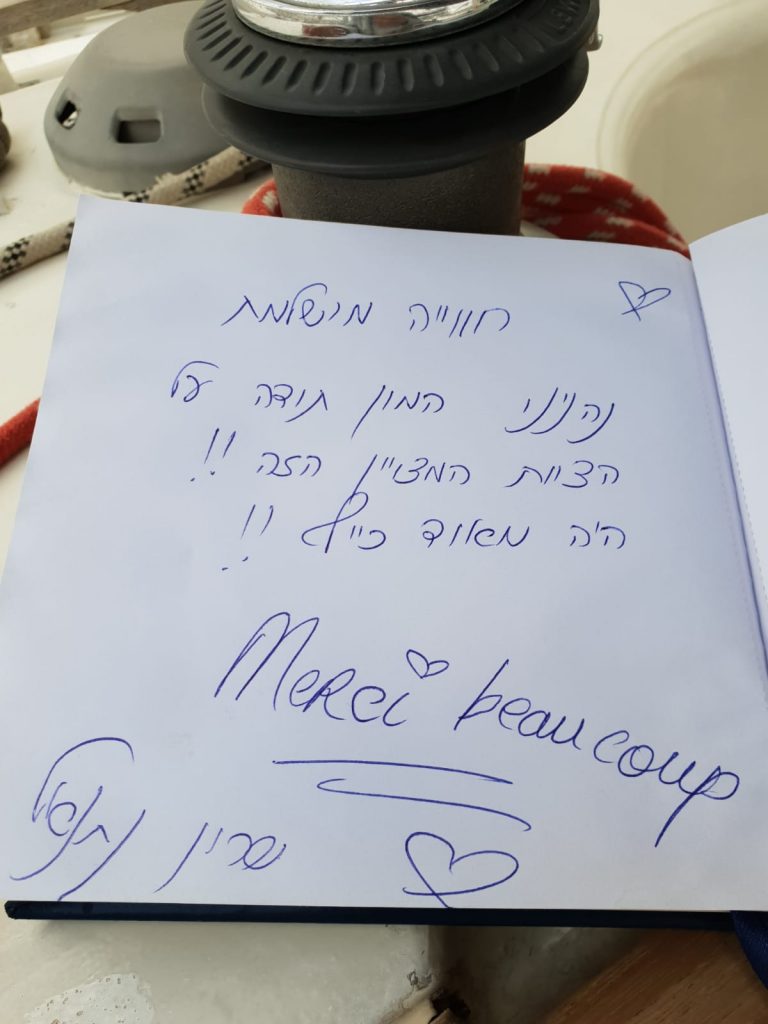 חווייה מושלמת
נהנינו המון תודה על
הצוות המצויין הזה !!
היה מאוד כייף !!
Merci beaucoup
שרין נתנאל